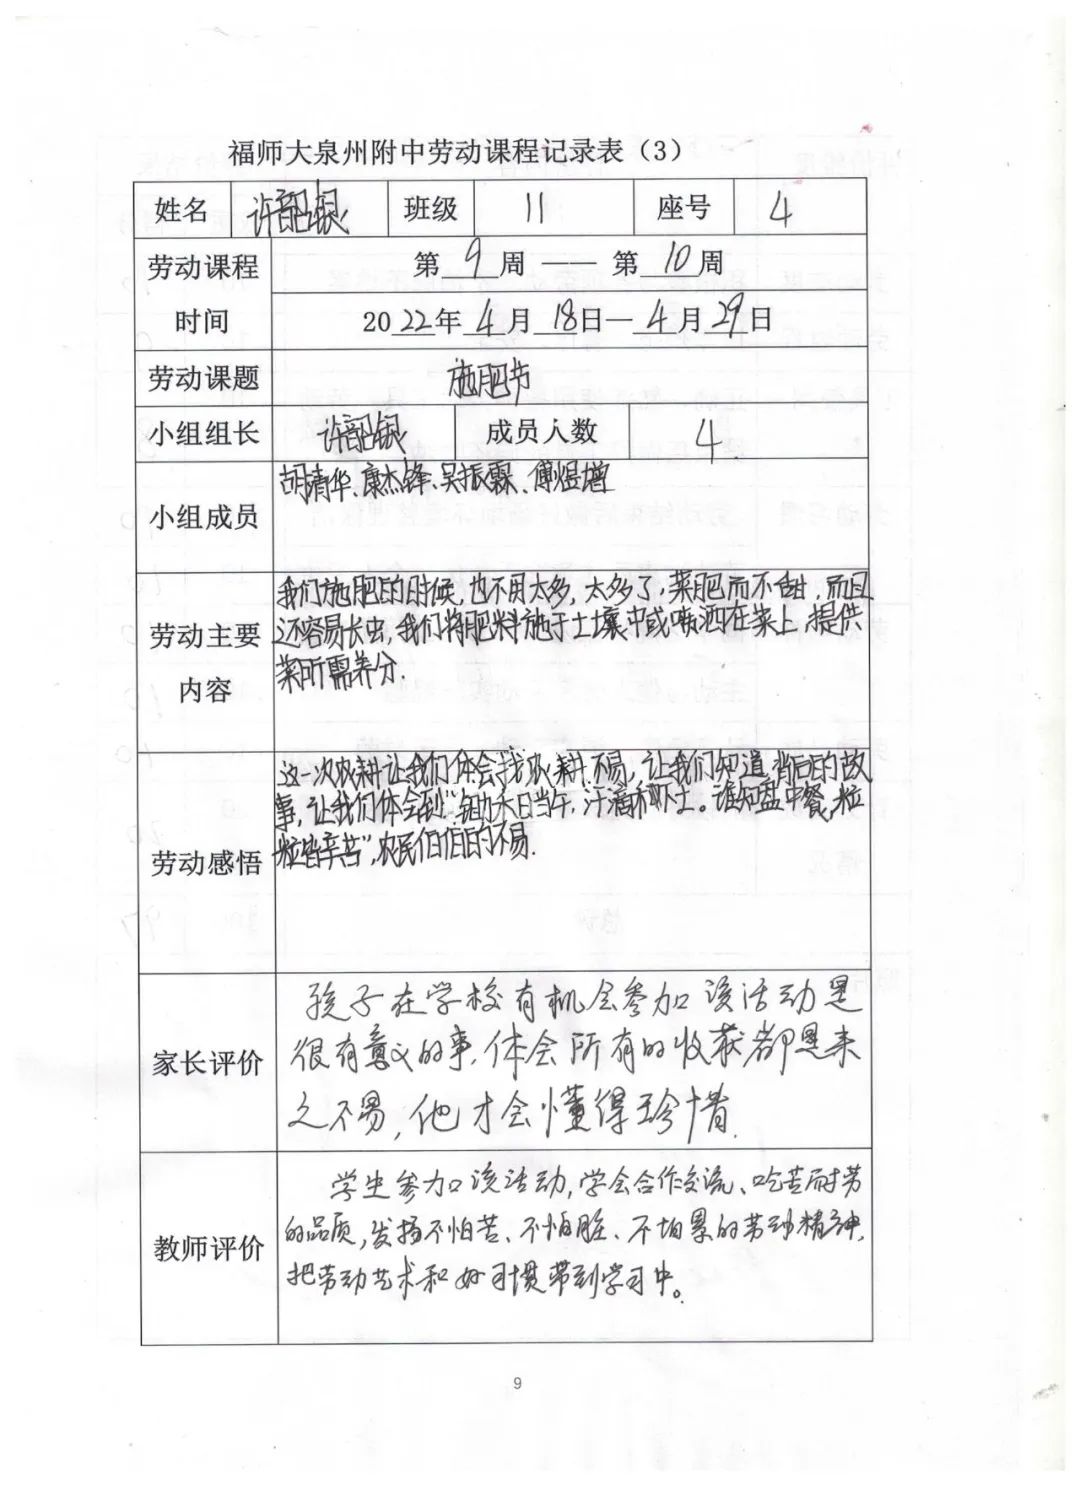 福师大泉州附中劳动课程记录表（3）
姓名 许韶银 班级 11 座号 4
劳动课程时间
第 9 周 —— 第 10 周
2022年 4 月 18日— 4 月 29日
劳动课题 施肥节
小组组长 许韶银 成员人数 4
小组成员
胡清华、康杰锋、吴振霖、傅煜增
劳动主要内容
我们施肥的时候,也不用太多,太多了,菜肥而不甜,而且
还容易长虫,我们将肥料施于土壤中或喷洒在菜上,提供
菜所需养分.
劳动感悟
这一次农耕让我们体会找农耕不易,让我们知道背后的故
事,让我们体会到"锄禾日当午,汗滴禾下土。谁知盘中餐,粒
粒皆辛苦",农民伯伯的不易.
家长评价
孩子在学校有机会参加该活动是
很有意义的事,体会所有的收获都是来
之不易,他才会懂得珍惜.
教师评价
学生参加该活动,学会合作交流、吃苦耐劳
的品质,发扬不怕苦、不怕脏、不怕累的劳动精神,
把劳动艺术和好习惯带到学习中。
9